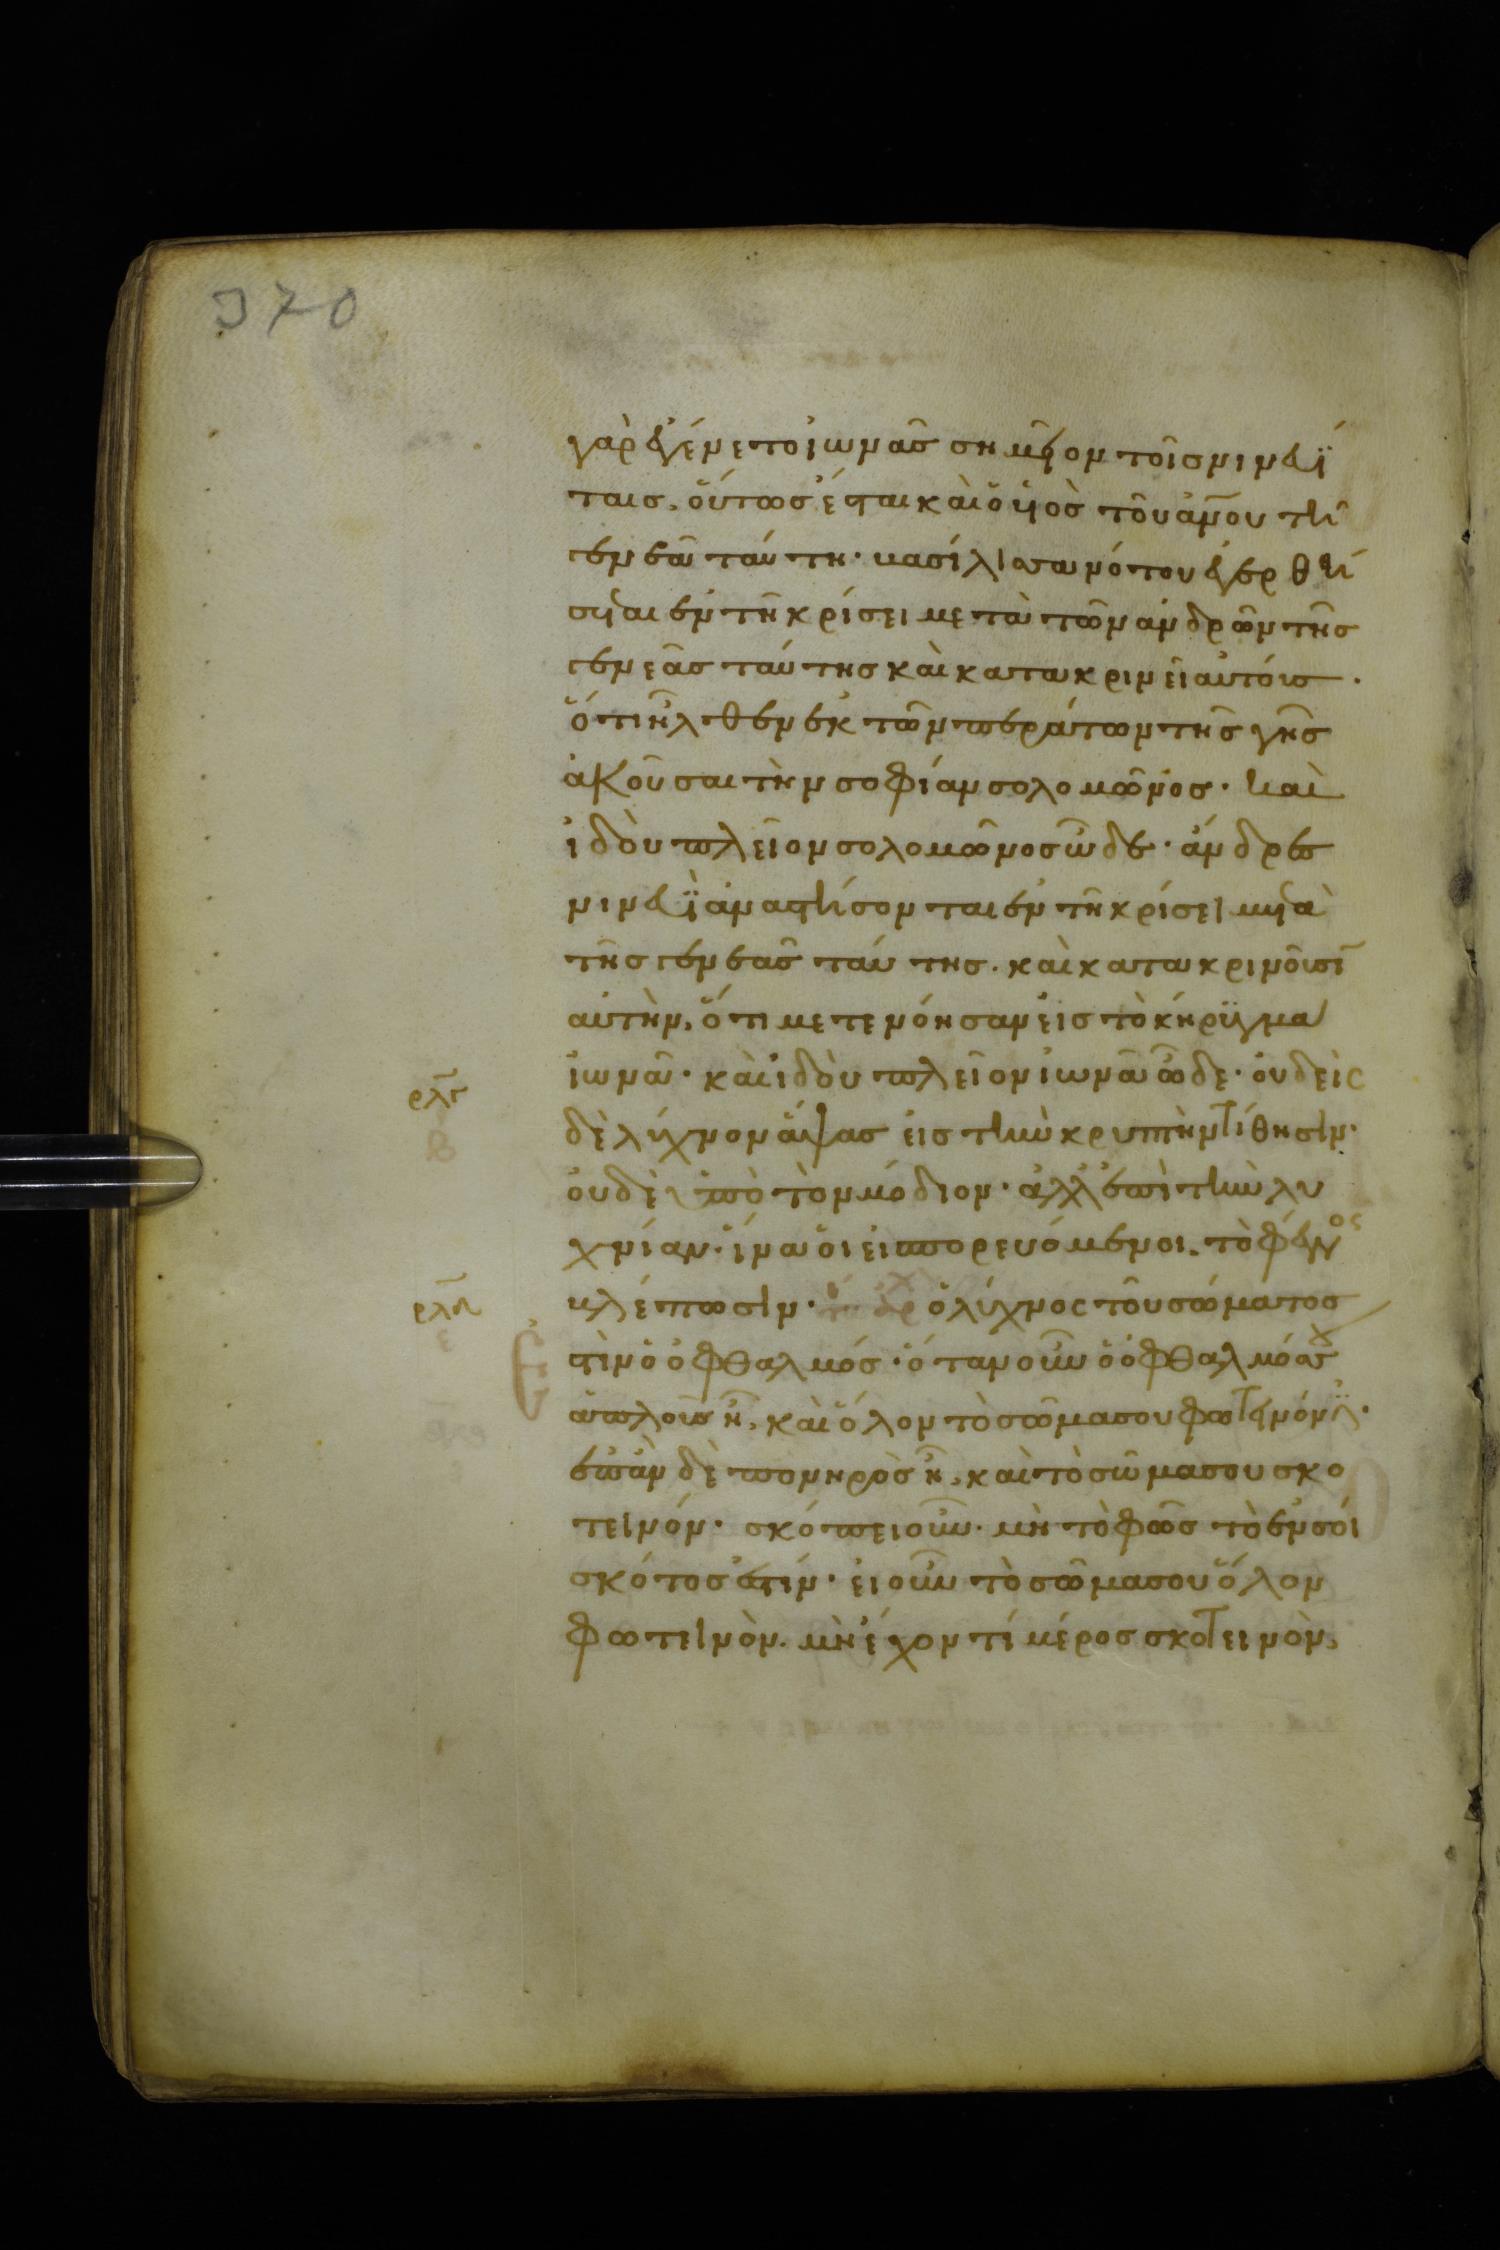 370
γὰρ ἐγένετο ἰωνᾶς σημεῖον τοῖς νινευΐ
ταις, οὕτως ἔσται καὶ ὁ υἱὸς τοῦ ἀν̅ου τῆ
γενεᾶ ταύτη· βασίλισσα νότου ἐγερθή
σεται ἐν τῆ κρίσει μετὰ τῶν ἀνδρῶν τῆς
γενεᾶς ταύτης καὶ κατακρινεῖ αὐτούς·
ὅτι ἦλθεν ἐκ τῶν περάτων τῆς γῆς
ἀκοῦσαι τὴν σοφίαν σολομῶνος· καὶ
ἰδοὺ πλεῖον σολομῶνος ὧδε· ἄνδρες
νινευῒ ἀναστήσονται ἐν τῆ κρίσει μετὰ
τῆς γενεᾶς ταύτης· καὶ κατακρινοῦσῑ
αὐτὴν, ὅτι μετενόησαν εἰς τὸ κήρϋγμα
ἰωνᾶ· καὶ ἰδοὺ πλεῖον ἰωνᾶ ὧδε· οὐδεὶς
ρλγ
δὲ λύχνον ἅψας εἰς τὴν κρυπτὴν τίθησιν·
β
οὐδὲ ὑπὸ τὸν μόδιον· ἀλλ' ἐπὶ τὴν λυ
χνίαν· ἵνα οἱ εἰσπορευόμενοι, τὸ φέγγος
ρλδ
βλέπωσιν· ὁ λύχνος τοῦ σώματός
ε
ἐστιν ὁ ὀφθαλμός· ὅταν οὖν ὁ ὀφθαλμός
ἁπλοῦς ἦ, καὶ ὅλον τὸ σῶμα σου φωτεινόν
ἐπὰν δὲ πονηρὸς ἦ, καὶ τὸ σῶμα σου σκο
τεινόν· σκόπει οὖν· μὴ τὸ φῶς τὸ ἐν σοί
σκότος ἐστίν· εἰ οὖν τὸ σῶμα σου ὅλον
φωτεινὸν· μὴ ἔχον τί μέρος σκοτεινὸν,